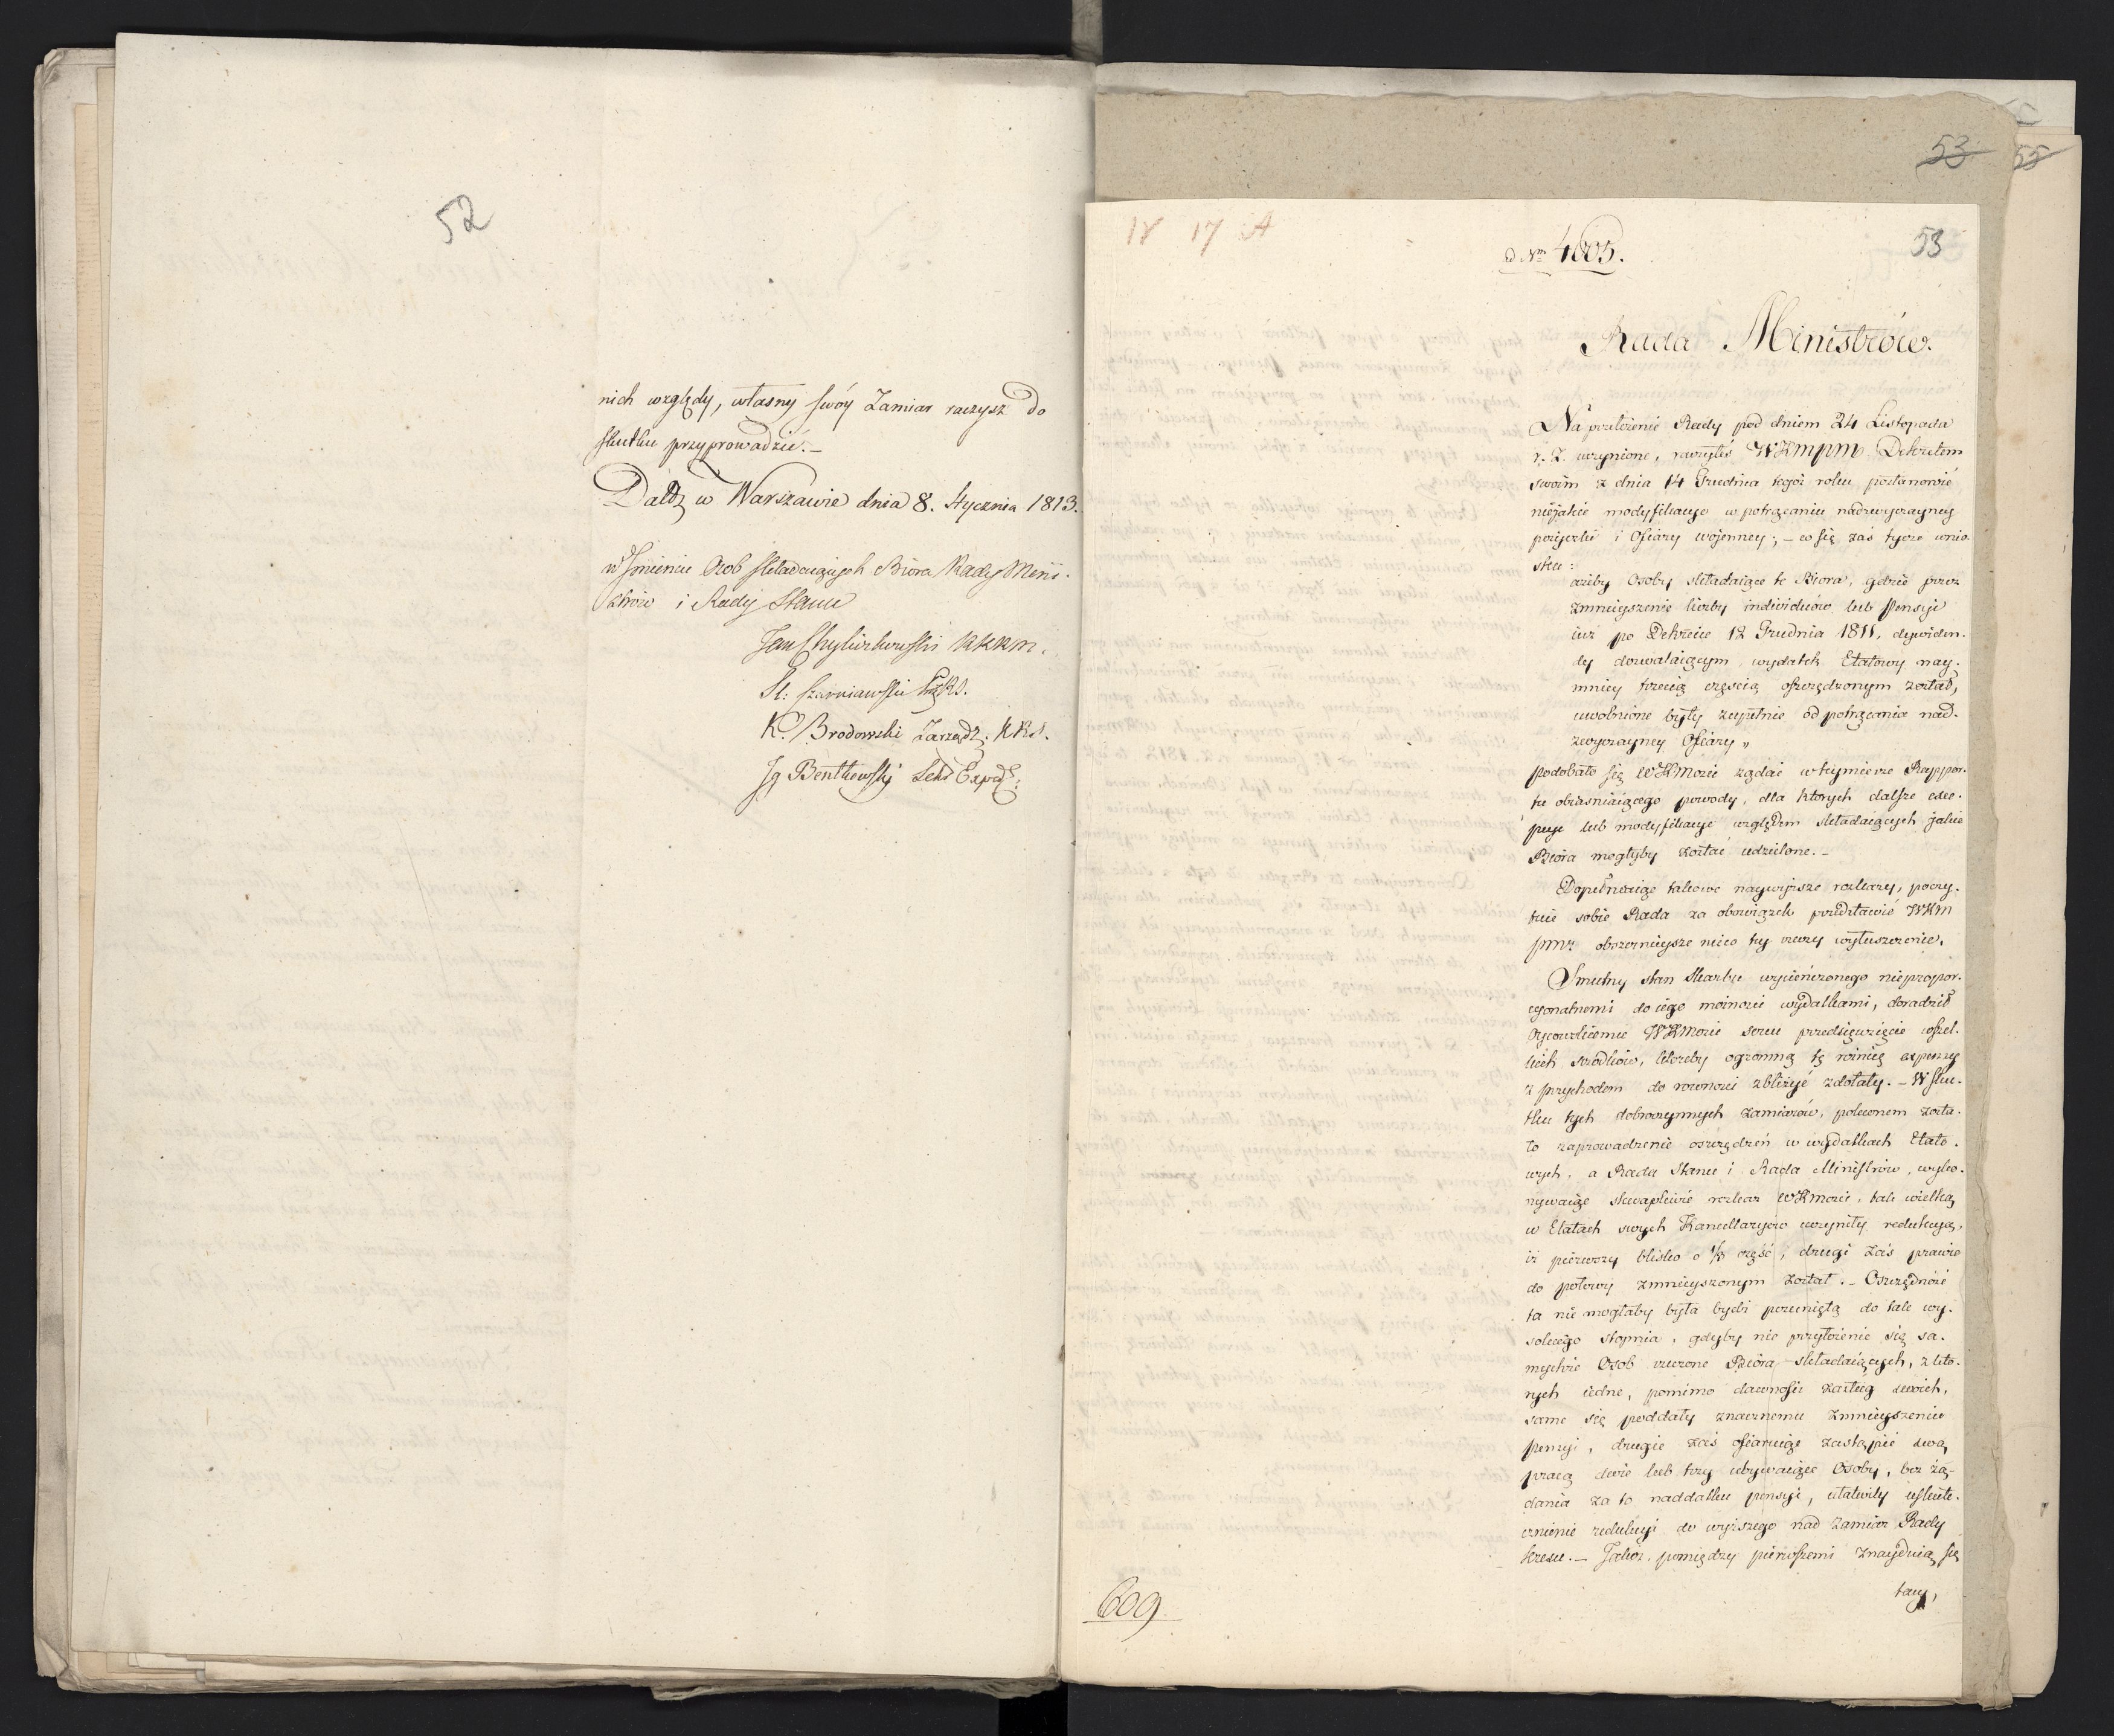 52
nich względy, własny swóy Zamiar raczysz do
skutku przyprowadzić. –
w Warszawie dnia 8. Stycznia 1813.
w Jmieniu Osob składaiących Biora Rady Mini-
strów i Rady Stanu
K. Brodowski Zarządz. KRS.
Jg Bentkowski Sekr Exped:
18 17 A
53
55
53
ad Nrm 4005.
Rada Ministrów.
Na przełożenie Rady pod dniem 24 Listopada
r. z. uczynione, raczyłeś WKMPM Dekretem
swoim z dnia 14 Grudnia tegoż roku postanowić
niejakie modyfikacye w potrącaniu nadzwyczayney
pożyczki i Ofiary wojenney; – co się zaś tycze wnio-
sku:
ażeby Osoby składaiące te Biora, gdzie przez
zmnieyszenie liczby individuów lub Pensyi
iuż po Dekrecie 12 Grudnia 1811, dywiden-
dy dozwalaiącym wydatek Etatowy nay-
mniey trzecią częścią oszczędzonym został,
uwolnione były zupełnie od potrącania nad-
zwyczayney Ofiary „
podobało się WKMości żądać w teymierze Rappor-
tu obiaśniaiącego powody, dla których dalsze exce-
pcye lub modyfikacye względem składaiących jakie
Biora mogłyby zostać udzielone. –
Dopełniaiąc takowe naywyższe rozkazy, poczy-
tuie sobie Rada za obowiązek przedstawić WKM
PMX obszernieysze nieco tey rzeczy wyłuszczenie.
Smutny stan Skarbu wycieńczonego niepropor-
cyonalnemi do iego możności wydatkami, doradził
Oycowskiemu WKMości sercu przedsięwzięcie wszel-
kich srodków, któreby ogromną tę różnicę expensy
z przychodem do rowności zbliżyć zdołały. – W sku-
tku tych dobroczynnych zamiarów, poleconem zosta-
ło zaprowadzenie oszczędzeń w wydatkach Etato-
wych, a Rada Stanu i Rada Ministrów, wyko-
nywaiąc skwapliwie rozkaz WKMości, tak wielką
w Etatach swych Kancellaryiów uczyniły redukcyą,
iż pierwszy blisko o 1/3 część, drugi zaś prawie
do połowy zmnieyszonym został. – Oszczędność
ta nie mogłaby była bydź posuniętą do tak wy-
sokiego stopnia, gdyby nie przyłożenie się sa-
mychże Osob rzeczone Biora składaiących, z któ-
rych iedne, pomimo dawności zasług swoich,
same się poddały znacznemu zmnieyszeniu
pensyi, drugie zaś ofiaruiąc zastąpić swą
pracą dwie lub trzy ubywaiące Osoby, bez żą-
dania za to naddatku pensyi, ułatwiły uskute-
cznienie redukcyi do wyższego nad zamiar Rady
kresu. – Jakoż, pomiędzy pierwszemi znayduią się
tacy,
609